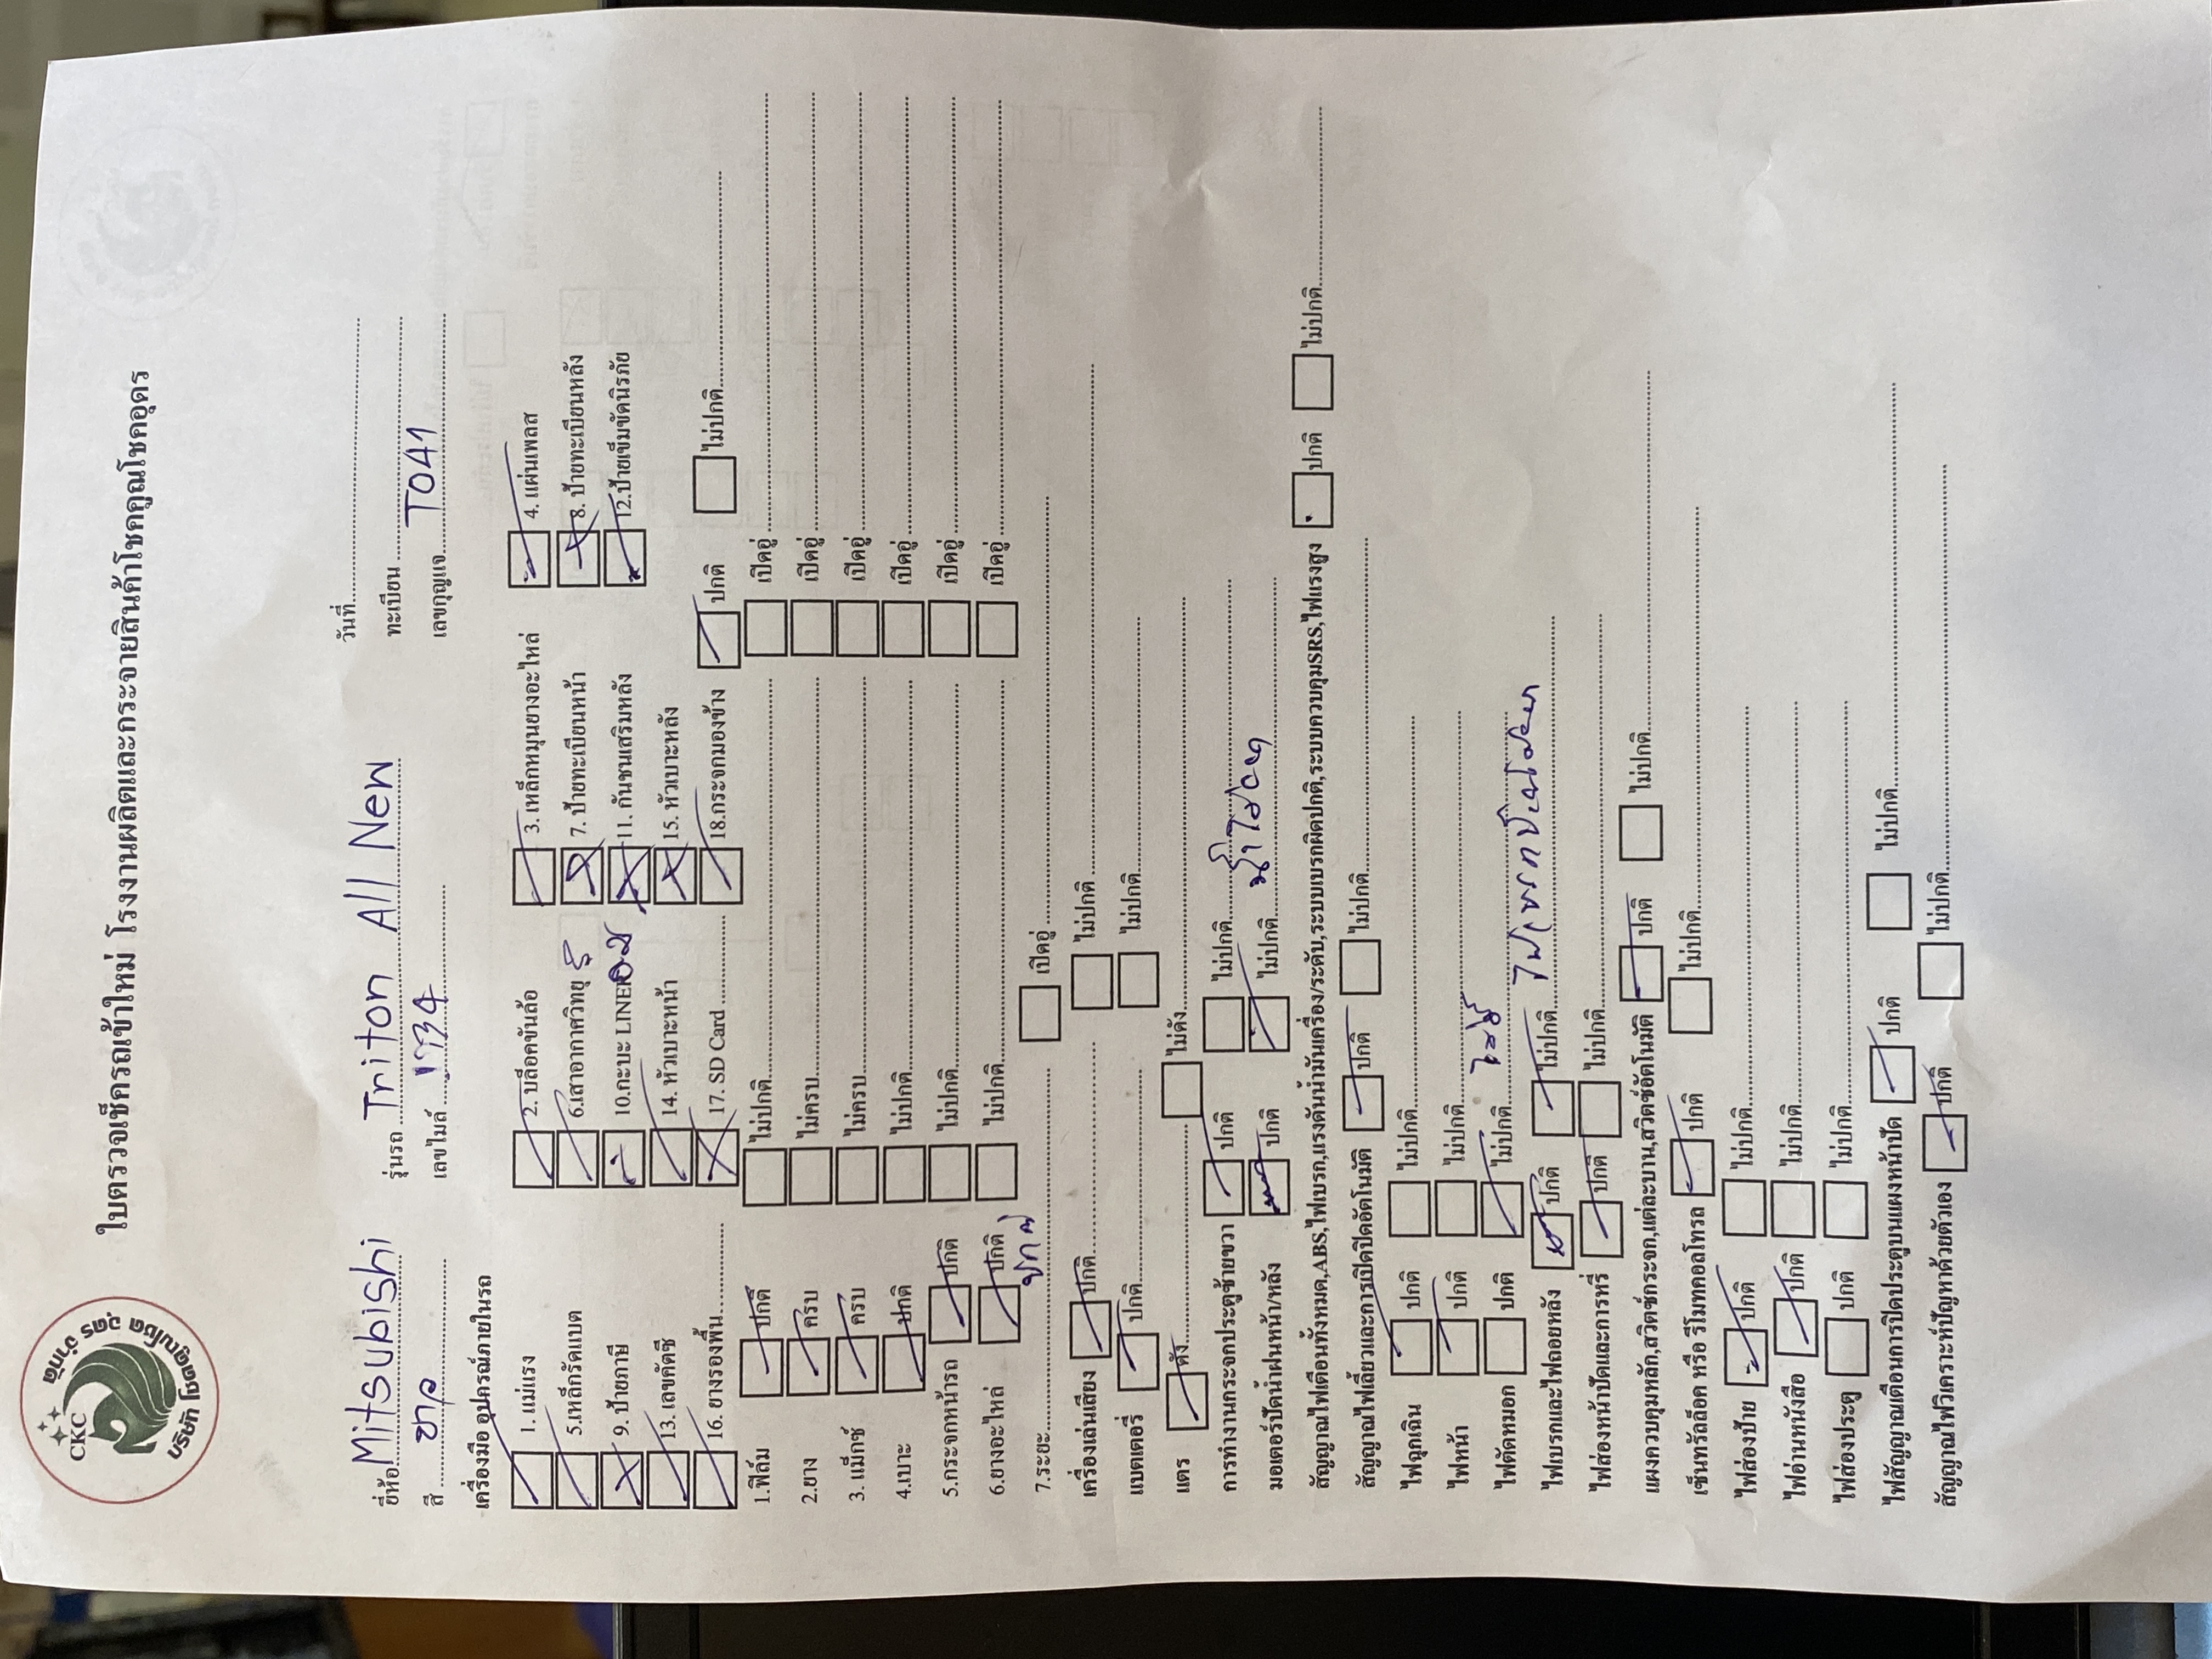 ใบตรวจเช็ครถเข้าใหม่ โรงงานผลิตและกระจายสินค้าโชคคูณโชคอุดร
CKC
บริษัท
จำกัด
วันที่
ยี่ห้อ Mitsubishi รุ่นรถ Triton All New ทะเบียน
สี ขาว เลขไมล์ เลขกุญแจ T041
เครื่องมือ อุปกรณ์ภายในรถ
1. แม่แรง 2. บล็อคขันล้อ 3. เหล็กหมุนยางอะไหล่ 4. แผ่นเพลส
5.เหล็กรัดแบต 6.เสาอากาศวิทยุ 7. ป้ายทะเบียนหน้า 8. ป้ายทะเบียนหลัง
9. ป้ายภาษี 10.กะบะ LINER 11. กันชนเสริมหลัง 12.ป้ายเข็มขัดนิรภัย
13. เลขคัตซี 14. หัวเบาะหน้า 15. หัวเบาะหลัง
16. ยางรองพื้น 17. SD Card 18.กระจกมองข้าง ปกติ ไม่ปกติ
1.ฟิล์ม ปกติ ไม่ปกติ เปิดอู่
2.ยาง ครบ ไม่ครบ เปิดอู่
3. แม็กซ์ ครบ ไม่ครบ เปิดอู่
4.เบาะ ปกติ ไม่ปกติ เปิดอู่
5.กระจกหน้ารถ ปกติ ไม่ปกติ เปิดอู่
6.ยางอะไหล่ ปกติ ไม่ปกติ เปิดอู่
7.ระยะ เปิดอู่
เครื่องเล่นเสียง ปกติ ไม่ปกติ
แบตเตอรี่ ปกติ ไม่ปกติ
แตร ดัง ไม่ดัง
การทำงานกระจกประตูซ้ายขวา ปกติ ไม่ปกติ
มอเตอร์ปัดน้ำฝนหน้า/หลัง ปกติ ไม่ปกติ
สัญญาณไฟเตือนทั้งหมด,ABS,ไฟเบรก,แรงดันน้ำมันเครื่อง/ระดับ,ระบบเบรกผิดปกติ,ระบบควบคุมSRS,ไฟแรงสูง ปกติ ไม่ปกติ
สัญญาณไฟเลี้ยวและการเปิดปิดอัตโนมัติ ปกติ ไม่ปกติ
ไฟฉุกเฉิน ปกติ ไม่ปกติ
ไฟหน้า ปกติ ไม่ปกติ
ไฟตัดหมอก ปกติ ไม่ปกติ
ไฟเบรกและไฟถอยหลัง ปกติ ไม่ปกติ
ไฟส่องหน้าปัดและการหรี่ ปกติ ไม่ปกติ
แผงควบคุมหลัก,สวิตซ์กระจก,แต่ละบาน,สวิตซ์อัตโนมัติ ปกติ ไม่ปกติ
เซ็นทรัลล็อค หรือ รีโมทคอลโทรล ปกติ ไม่ปกติ
ไฟส่องป้าย ปกติ ไม่ปกติ
ไฟอ่านหนังสือ ปกติ ไม่ปกติ
ไฟส่องประตู ปกติ ไม่ปกติ
ไฟสัญญาณเตือนการปิดประตูบนแผงหน้าปัด ปกติ ไม่ปกติ
สัญญาณไฟวิเคราะห์ปัญหาด้วยตัวเอง ปกติ ไม่ปกติ